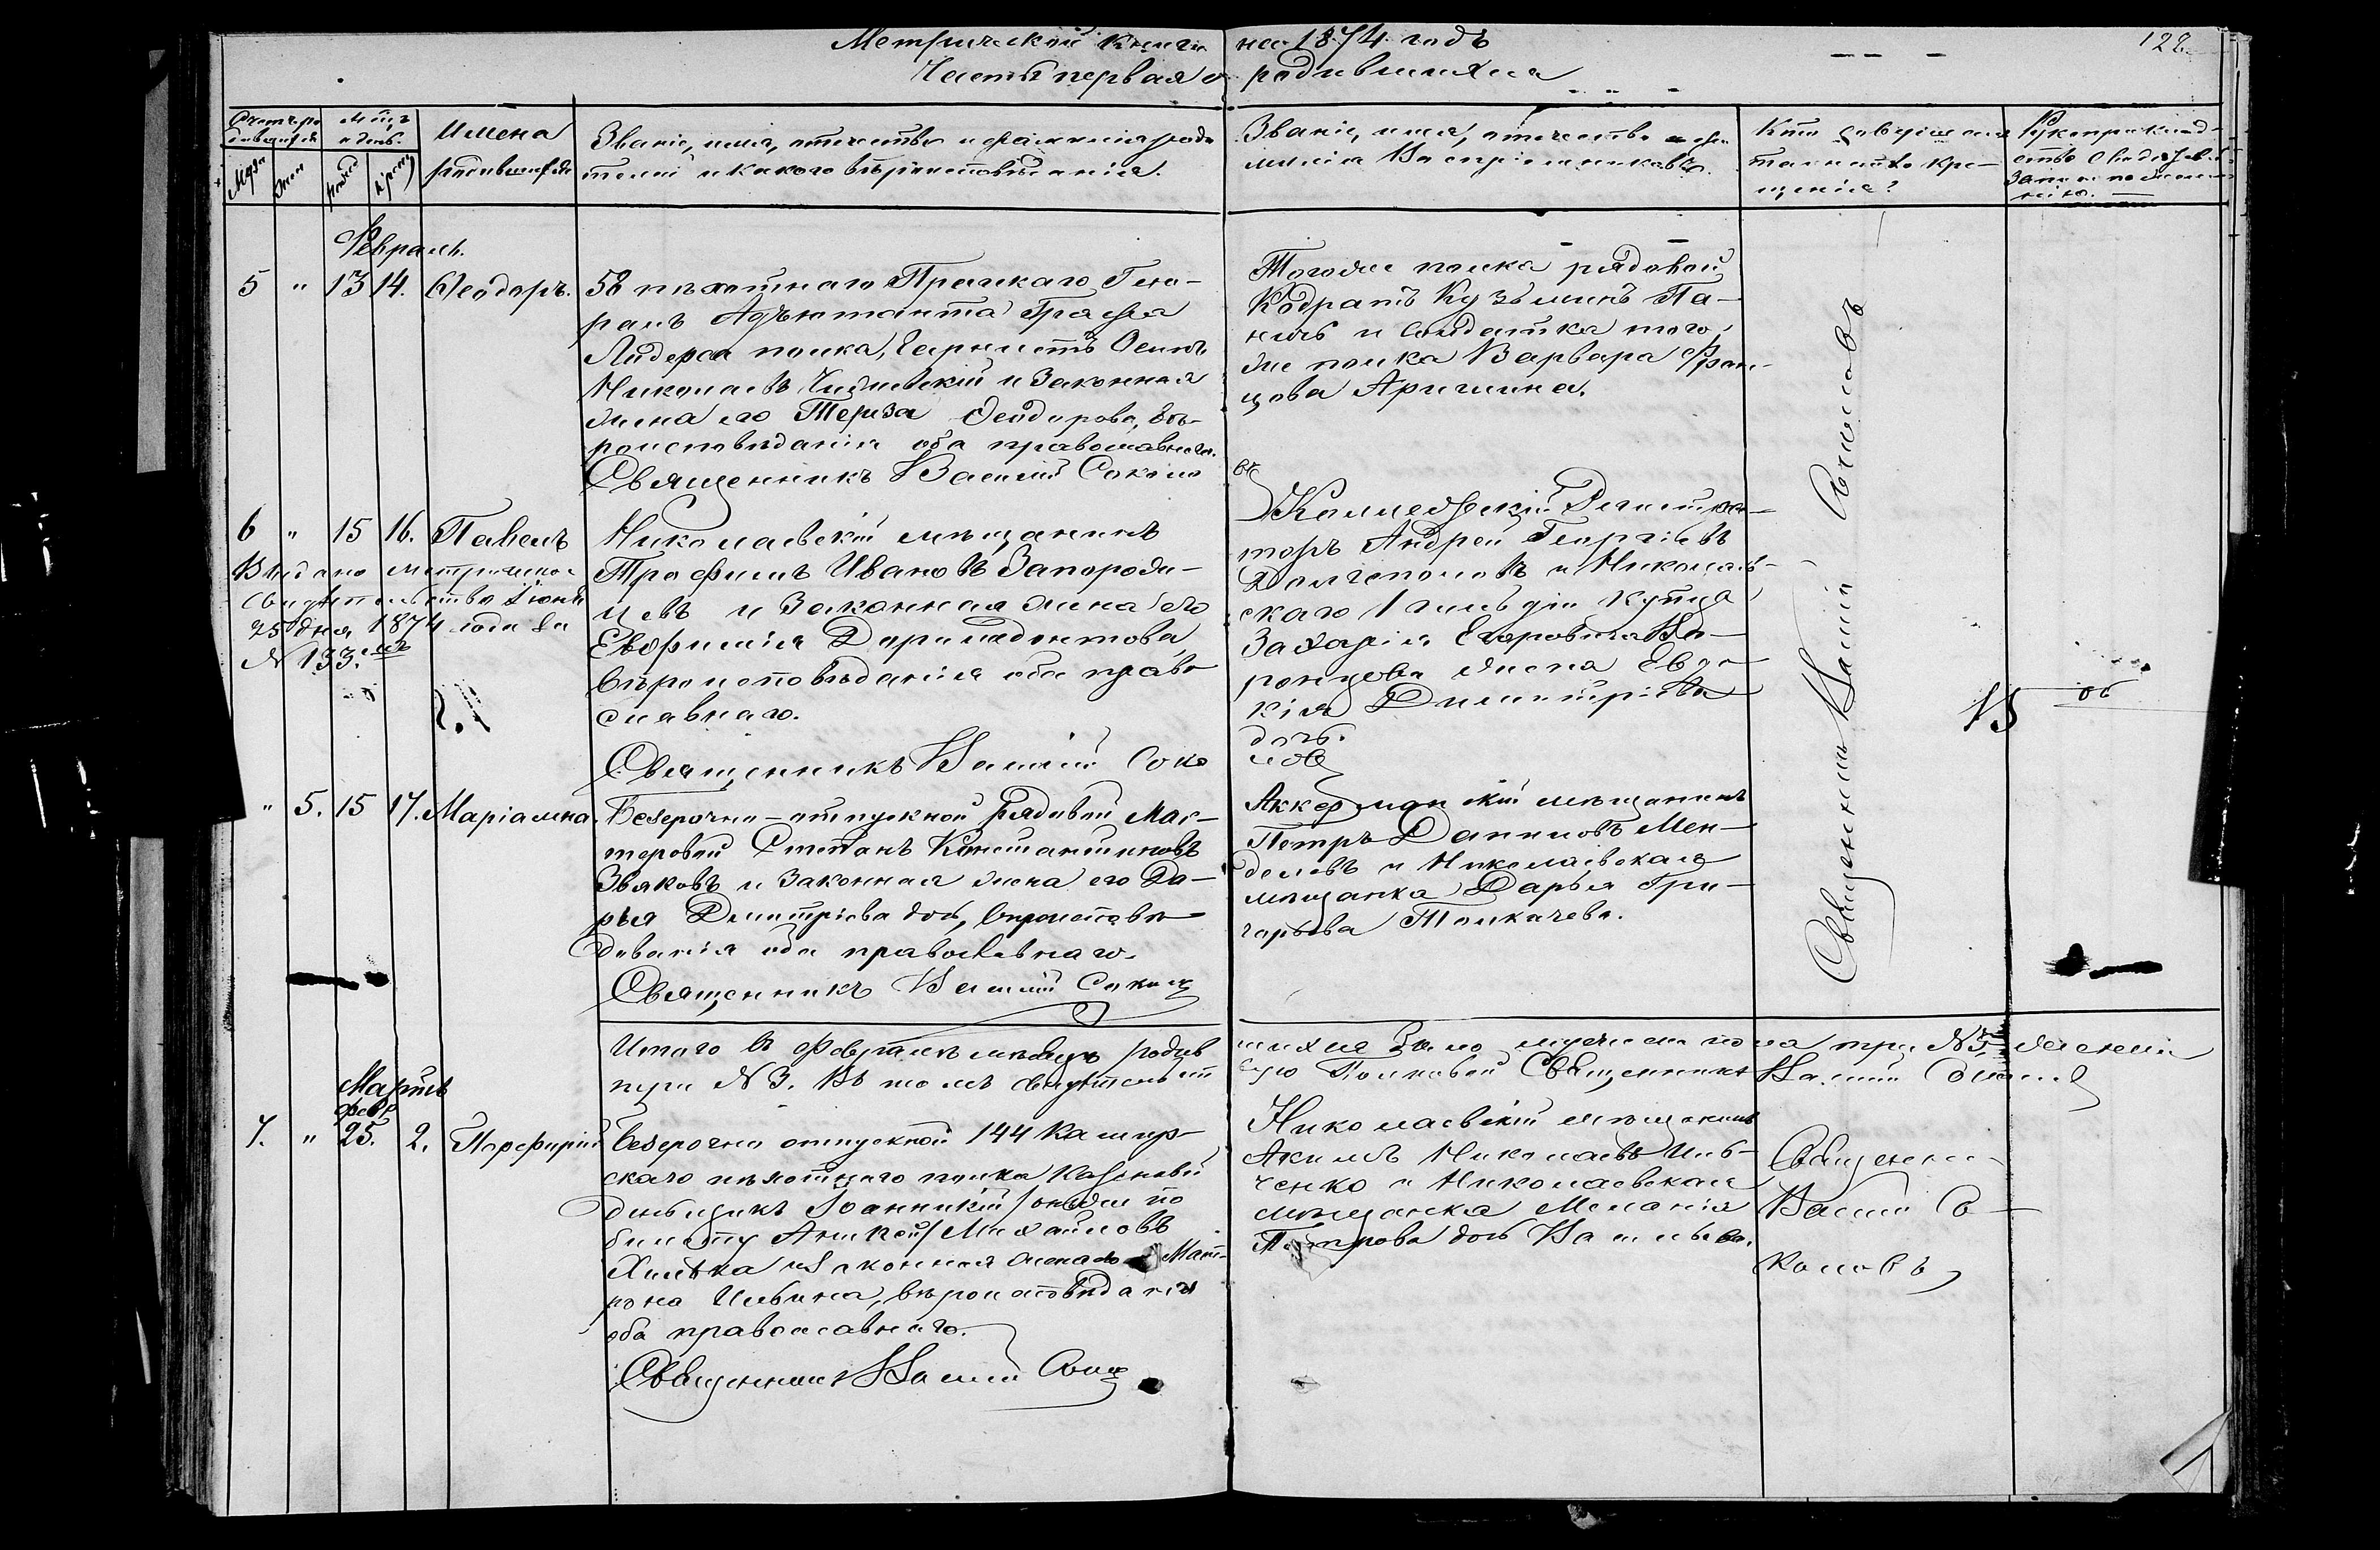 Метрической книги на 1874 годъ
122
Часть первая о родившихся
Счетъ родившихся
Мѣсяцъ и день.
Имена родившихся
Званіе, имя, отчество и фамилія родителей и какого вѣроисповѣданія.
Званіе, имя, отчество и фамилія Воспріемниковъ.
Кто совершалъ таинство крещенія?
Рукоприкладство свидѣтелей записи по желанію.
Февраль.
5 " 13 14. Ѳеодоръ.
58 пѣхотнаго Прагскаго Гене-
ралъ Адъютанта Графа
Лидерса полка, Горнистъ Осипъ
Николаевъ и Законная
жена его Тереза Ѳеодорова, вѣ-
роисповѣданія оба православнаго.
Священникъ Василій Соколо
въ
Тогоже полка рядовой
Кодратъ Кузьминъ Па-
и солдатка того
же полка Варвара Фран-
цова Аришина.
6 " 15 16. Павелъ
Выдано метрическое
свидѣтельство Іюня
25 дня 1874 года за
№ 133.мъ
Николаевскій мѣщанинъ
Трофимъ Ивановъ Запорож-
цевъ и Законная жена его
Евфимія Доримедонтова,
вѣроисповѣданія оба право
славнаго.
Священникъ Василій Соко
ловъ
Коллежскій Регистра-
торъ Андрей Георгіевъ
Долгополовъ и Николаев-
скаго 1 гильдіи купца
Захарія Егоровича Во-
ронцова жена Евдо-
кія Димитріева
дочь.
" 5. 15 17. Маріамна.
Безсрочно-отпускной Рядовой Мас-
теровой Степанъ Константиновъ
Звяковъ и Законная жена его Да-
рья Дмитріева дочь, вѣроисповѣ-
данія оба православнаго.
Священникъ Василій Соколовъ
Аккерманскій мѣщанинъ
Петръ Даниловъ Мен-
делевъ и Николаевская
мѣщанка Дарья Гри-
горьева Толкачева.
Священникъ Василій Соколовъ
Итого въ Февралѣ мѣсяцѣ родив шихся было мужеска пола три №3, женска
три № 3. Въ томъ свидѣтельст вую Полковой Священникъ Василій Соколовъ
Мартъ
февр
7. " 25. 2. Порфирій
Безсрочно отпускной 144 Кашир-
скаго пѣхотнаго полка Казенной
деньщикъ Іоанникій /онъ же по
билету Аникей/ Михайловъ
Хилька и Законная жена его Мат-
рона Ильина, вѣроисповѣданія
оба православнаго.
Священникъ Василій Соколовъ
Николаевскій мѣщанинъ
Акимъ Николаевъ Иль-
ченко и Николаевская
мѣщанка Меланія
Петрова дочь Васильева.
Священникъ
Василій Со-
коловъ